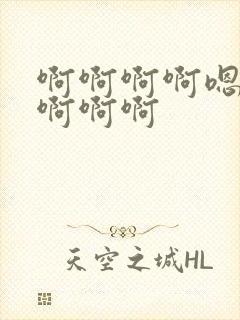 啊啊啊啊嗯
啊啊啊
天空之城HL